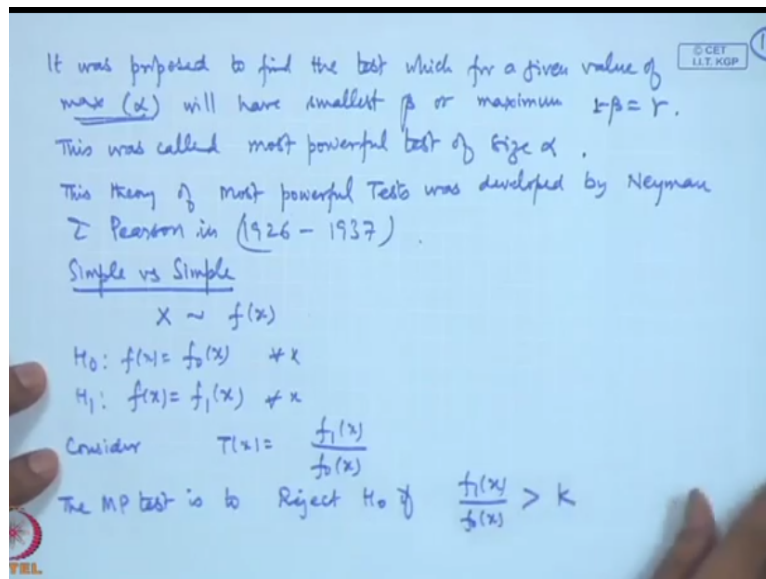 © CET
I.I.T. KGP
It was proposed to find the test which for a given value of
max (α) will have smallest β or maximum 1-β = γ.
This was called most powerful test of size α.
This theory of Most powerful Tests was developed by Neyman
& Pearson in (1926 - 1937).
Simple vs Simple
X ~ f(x)
H₀: f(x) = f₀(x) ∀ x
H₁: f(x) = f₁(x) ∀ x
Consider T(x) = f₁(x) / f₀(x)
The MP test is to Reject H₀ if f₁(x) / f₀(x) > k